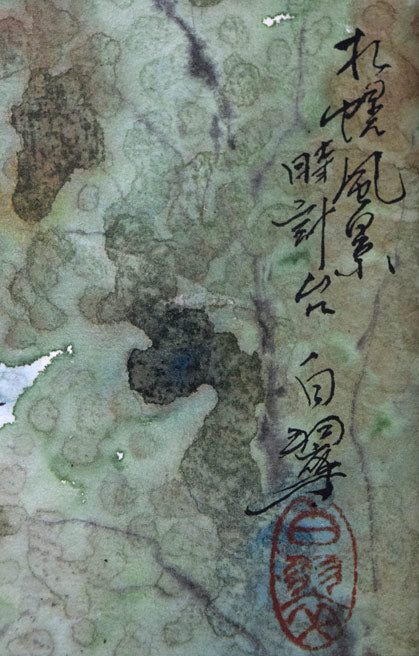 札幌風景
時計台
白翠
白翠